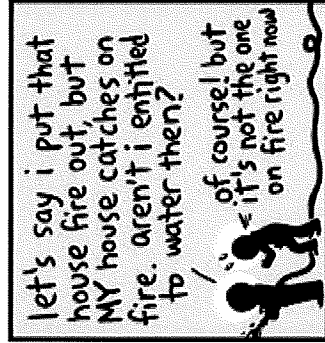 let's say i put that
house fire out, but
MY house catches on
fire. aren't i entitled
to water then?
of course! but
it's not the one
on fire right now